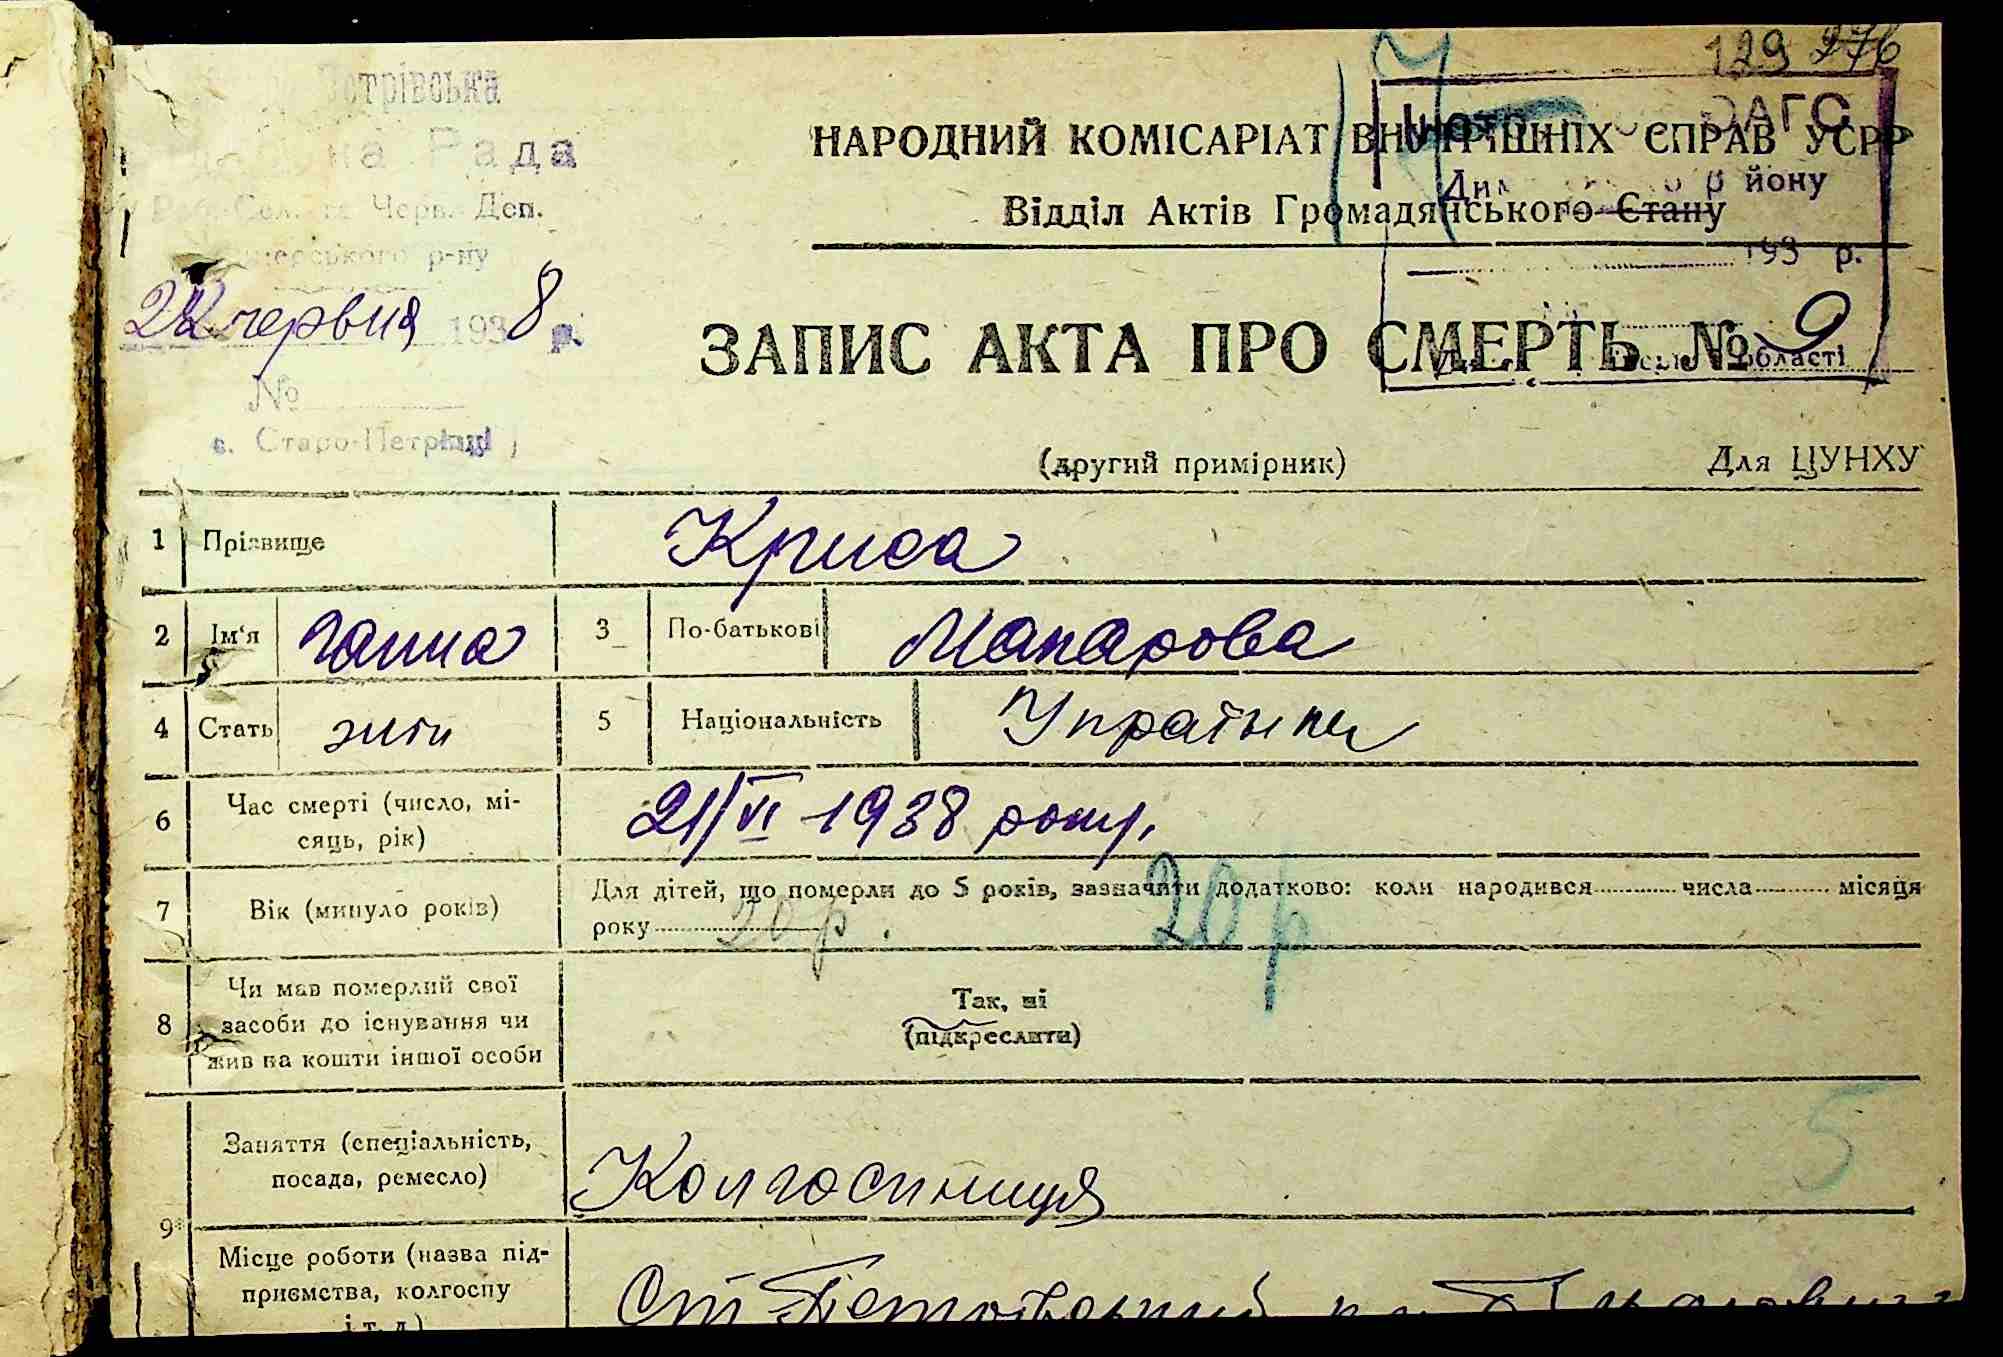 129 276
Петрівська
Рада
Черв. Деп.
р-ну
22 червня 1938 р.
№
с. Старо-Петрівці
ЗАГС
йону
193 р.
області
НАРОДНИЙ КОМІСАРІАТ ВНУТРІШНІХ СПРАВ УСРР
Відділ Актів Громадянського Стану
ЗАПИС АКТА ПРО СМЕРТЬ № 9
(другий примірник) Для ЦУНХУ
1 Прізвище Криса
2 Ім‘я Ганна 3 По-батькові Макарова
4 Стать жін 5 Національність
6 Час смерті (число, мі-
сяць, рік) 21/VI 1938 року.
7 Вік (минуло років) Для дітей, що померли до 5 років, зазначити додатково: коли народився числа місяця
року 20 р. 20 р
8 Чи мав померлий свої
засоби до існування чи
жив на кошти іншої особи
Так, ні
(підкреслити)
5
9 Заняття (спеціальність,
посада, ремесло) Колгоспниця
Місце роботи (назва під-
приємства, колгоспу
і т. д.) Ст-Петровський